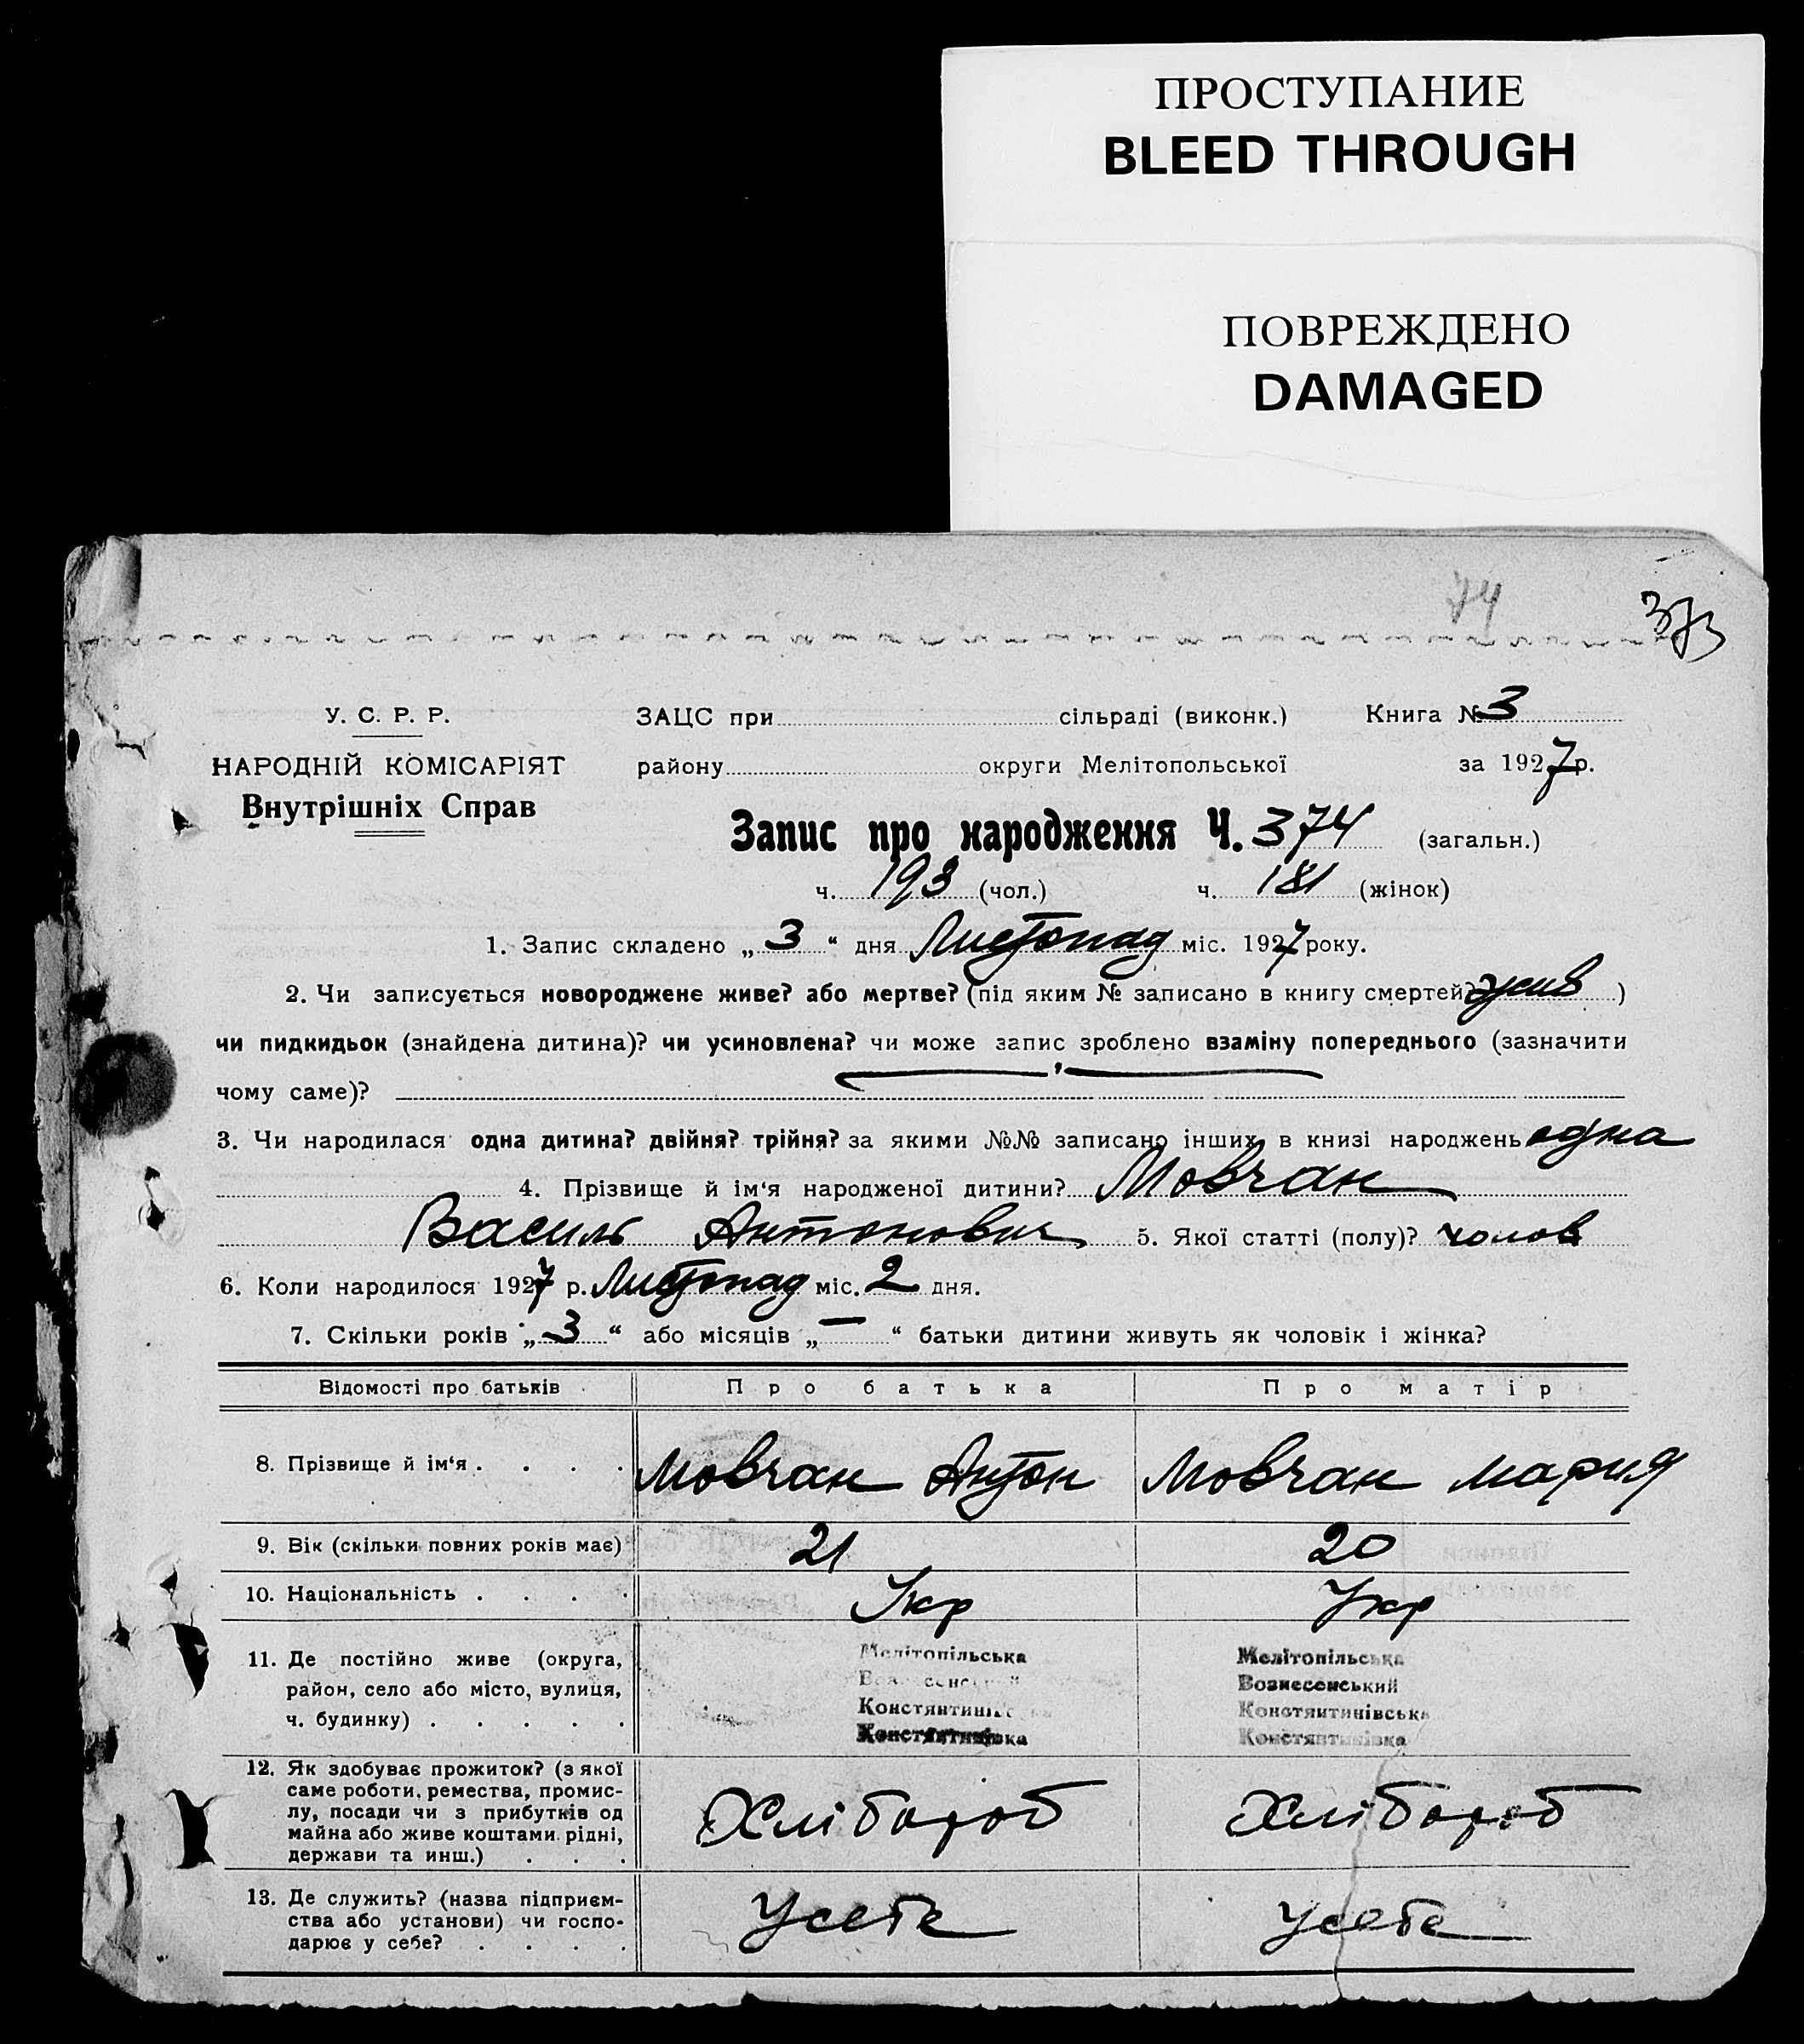 ПРОСТУПАНИЕ
BLEED THROUGH
ПОВРЕЖДЕНО
DAMAGED
74
373
У. С. Р. Р.
ЗАЦС при сільраді (виконк.) Книга № 3
НАРОДНІЙ КОМІСАРІЯТ
району округи Мелітопольської за 1927 р.
Внутрішніх Справ
Запис про народження Ч. 374 (загальн.)
ч. 193 (чол.) ч. 181 (жінок)
1. Запис складено „ 3 “ дня Листопад міс. 1927 року.
2. Чи записується новороджене живе? або мертве? (під яким № записано в книгу смертей? жив )
чи пидкидьок (знайдена дитина)? чи усиновлена? чи може запис зроблено взаміну попереднього (зазначити
чому саме)?
3. Чи народилася одна дитина? двійня? трійня? за якими №№ записано інших в книзі народжень одна
4. Прізвище й ім‘я народженої дитини? Мовчан
Василь Антонович 5. Якої статті (полу)? чолов
6. Коли народилося 1927 р. Листопад міс. 2 дня.
7. Скільки років „ 3 “ або місяців „ — “ батьки дитини живуть як чоловік і жінка?
Відомості про батьків Про батька Про матір
8. Прізвище й ім‘я . . . . Мовчан Антон Мовчан Мария
9. Вік (скільки повних років має) 21 20
10. Національність . . . . Укр Укр
11. Де постійно живе (округа,
район, село або місто, вулиця,
ч. будинку) . . . . .
Мелітопільська
Констянтинівка
Мелітопільська
Вознесенський
Констянтинівська
Констянтинівка
12. Як здобуває прожиток? (з якої
саме роботи, ремества, промис-
лу, посади чи з прибутків од
майна або живе коштами рідні,
держави та инш.) . . .
Хлібороб Хлібороб
13. Де служить? (назва підприєм-
ства або установи) чи госпо-
дарює у себе? . . . .
Усебе Усебе